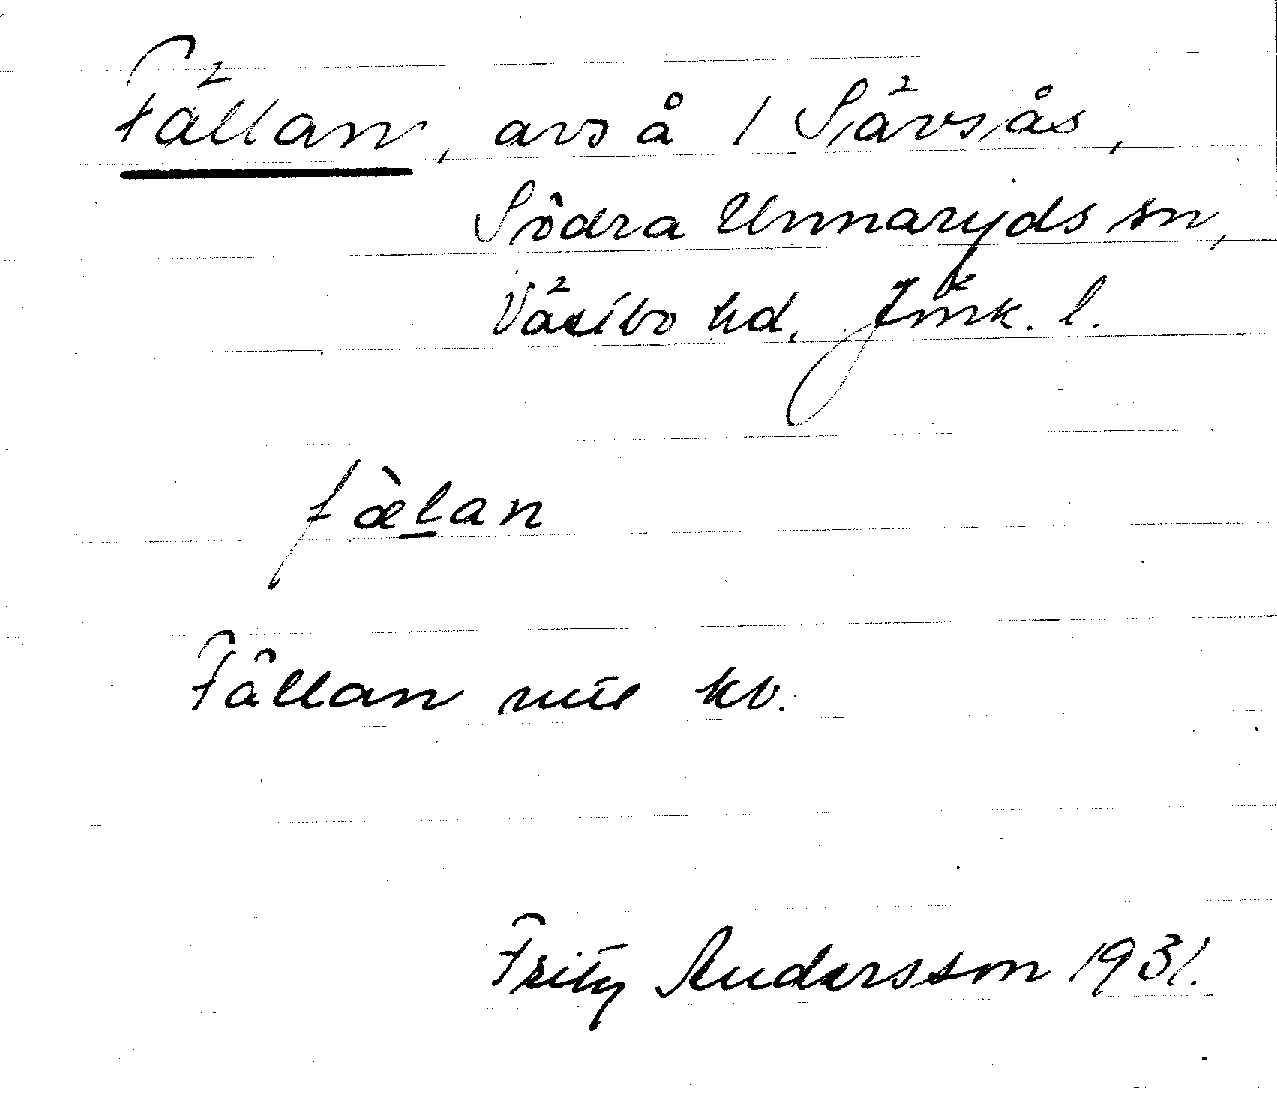 Fällan, avs å i Sävsjås,
Södra Unnaryds sn,
Västbo hd, Jönk. l.
fæ̀lan
Fällan mit kv.
Fritz Andersson 1931.